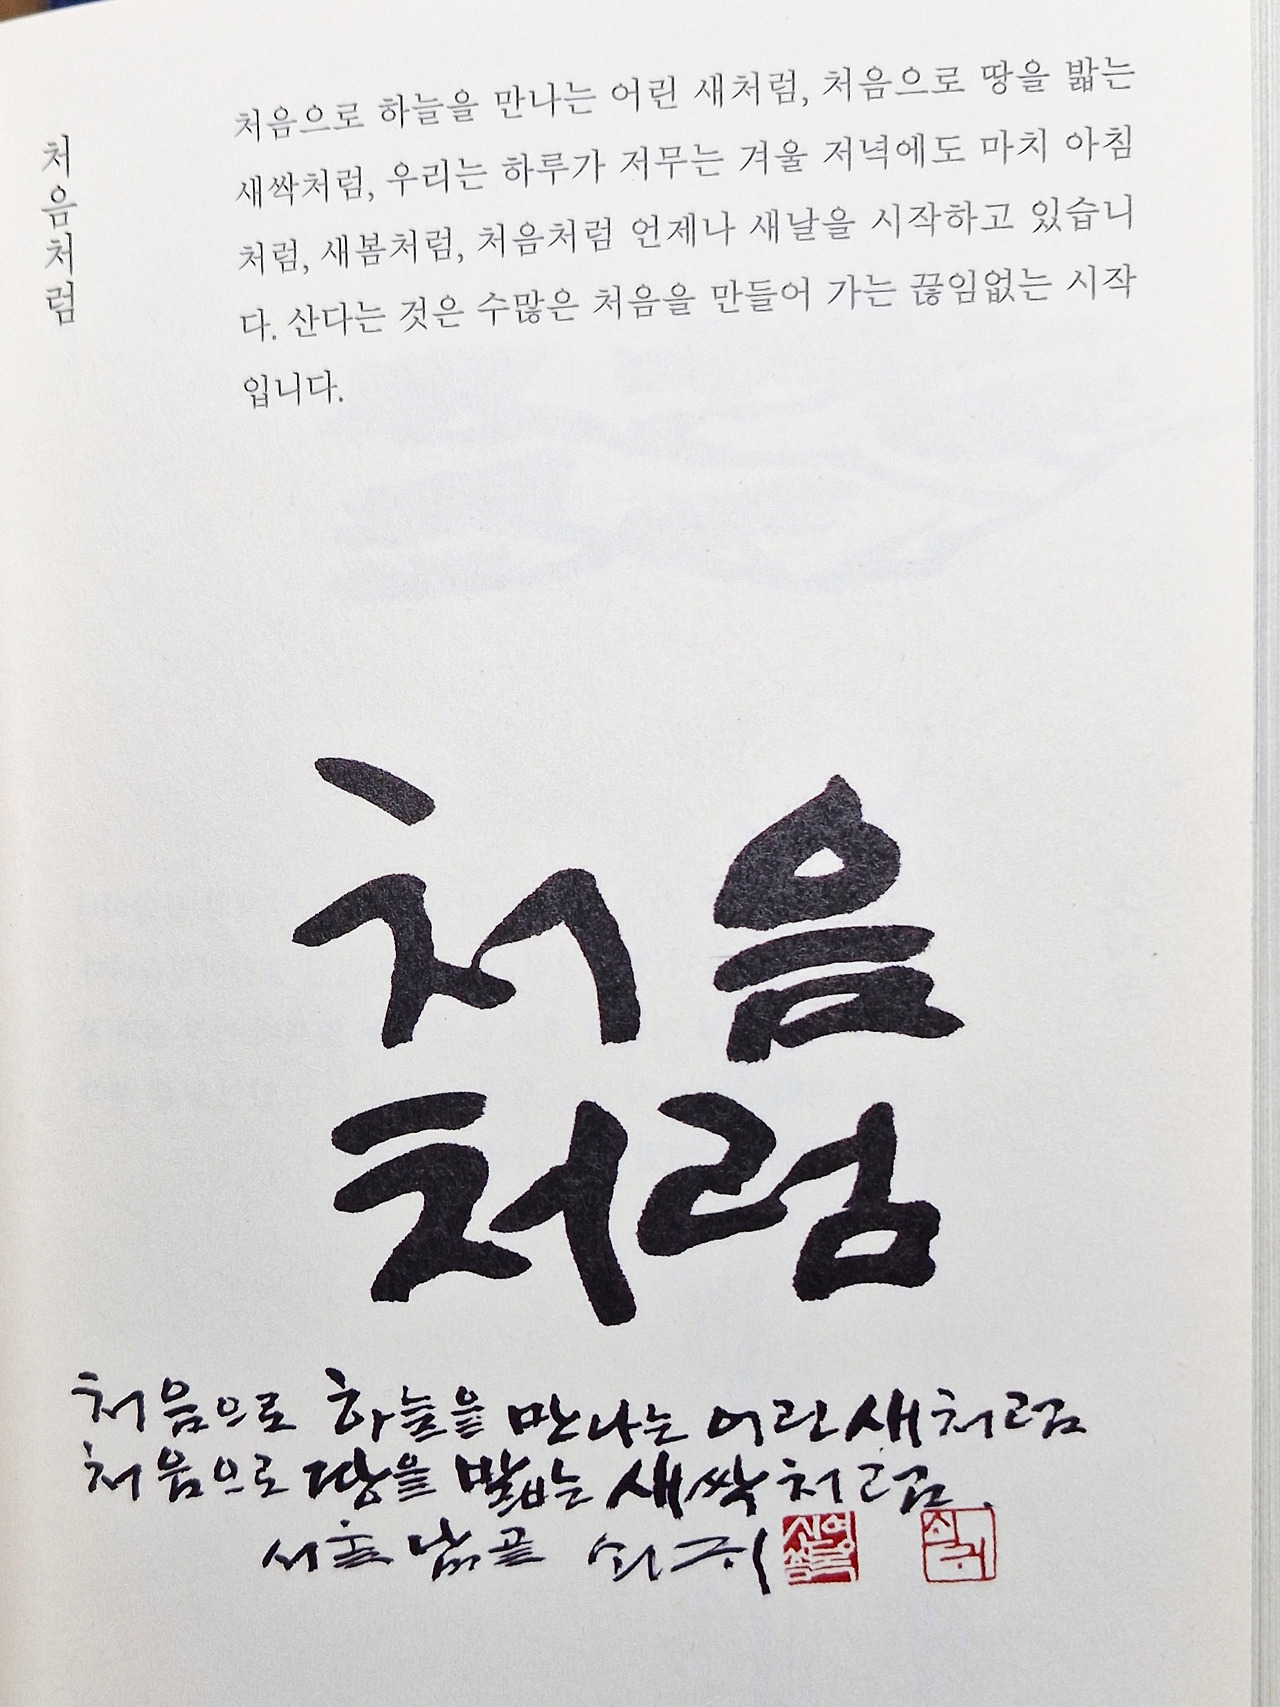 처음처럼
처음으로 하늘을 만나는 어린 새처럼, 처음으로 땅을 밟는
새싹처럼, 우리는 하루가 저무는 겨울 저녁에도 마치 아침
처럼, 새봄처럼, 처음처럼 언제나 새날을 시작하고 있습니
다. 산다는 것은 수많은 처음을 만들어 가는 끊임없는 시작
입니다.
처음
처럼
처음으로 하늘을 만나는 어린 새처럼
처음으로 땅을 밟는 새싹처럼.
서울 남끝 쇠귀
신영
쇠귀